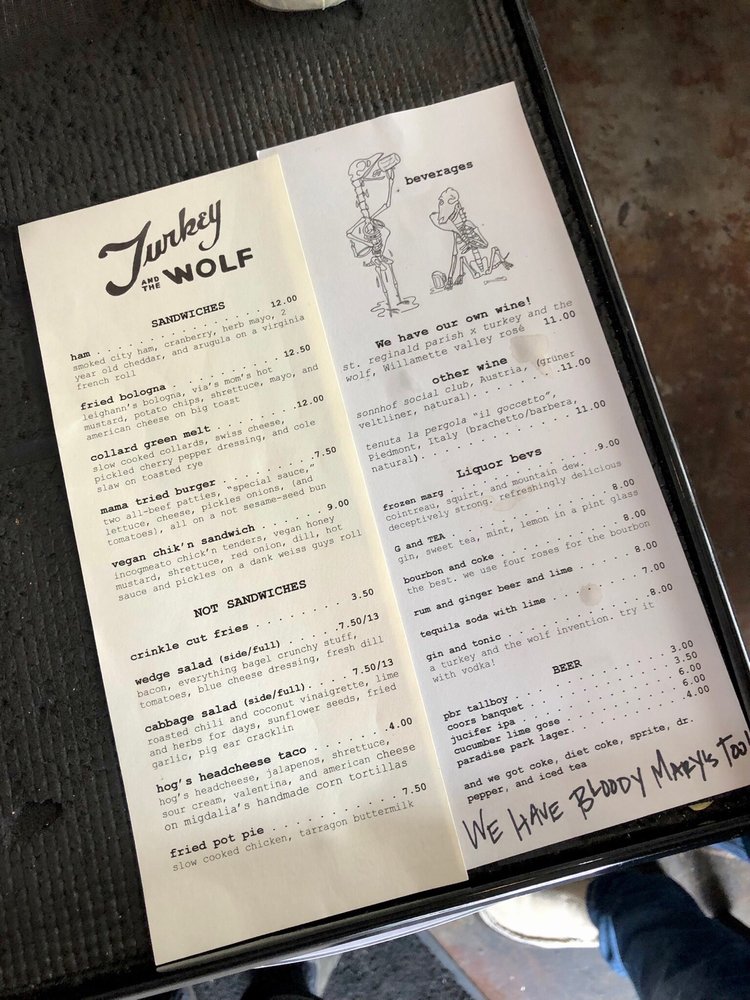 Turkey
AND THE WOLF
SANDWICHES
ham . . . . . . . . . . . . . . . . 12.00
smoked city ham, cranberry, herb mayo, 2
year old cheddar, and arugula on a virginia
french roll
fried bologna . . . . . . . . . . . 12.50
leighann's bologna, via's mom's hot
mustard, potato chips, shrettuce, mayo, and
american cheese on big toast
collard green melt . . . . . . . . .12.00
slow cooked collards, swiss cheese,
pickled cherry pepper dressing, and cole
slaw on toasted rye
mama tried burger . . . . . . . . . .7.50
two all-beef patties, "special sauce,"
lettuce, cheese, pickles onions, (and
tomatoes), all on a not sesame-seed bun
vegan chik'n sandwich . . . . . . . 9.00
incogmeato chick'n tenders, vegan honey
mustard, shrettuce, red onion, dill, hot
sauce and pickles on a dank weiss guys roll
NOT SANDWICHES
crinkle cut fries . . . . . . . . . 3.50
wedge salad (side/full) . . . . .7.50/13
bacon, everything bagel crunchy stuff,
tomatoes, blue cheese dressing, fresh dill
cabbage salad (side/full). . . . 7.50/13
roasted chili and coconut vinaigrette, lime
and herbs for days, sunflower seeds, fried
garlic, pig ear cracklin
hog's headcheese taco . . . . . . . .4.00
hog's headcheese, jalapenos, shrettuce,
sour cream, valentina, and american cheese
on migdalia's handmade corn tortillas
fried pot pie . . . . . . . . . . . 7.50
slow cooked chicken, tarragon buttermilk
beverages
We have our own wine!
st. reginald parish x turkey and the
wolf, Willamette valley rosé 11.00
other wine
sonnhof social club, Austria, (grüner
veltliner, natural). . . . . . . . .11.00
tenuta la pergola "il goccetto",
Piedmont, Italy (brachetto/barbera,
natural). . . . . . . . . . . . . . 11.00
Liquor bevs
frozen marg . . . . . . . . . . . . .9.00
cointreau, squirt, and mountain dew.
deceptively strong, refreshingly delicious
G and TEA . . . . . . . . . . . . . 8.00
gin, sweet tea, mint, lemon in a pint glass
bourbon and coke . . . . . . . . . . 8.00
the best. we use four roses for the bourbon
rum and ginger beer and lime . . . . 8.00
tequila soda with lime . . . . . . . 7.00
gin and tonic . . . . . . . . . . . .8.00
a turkey and the wolf invention. try it
with vodka!
BEER
pbr tallboy . . . . . . . . . . . . 3.00
coors banquet . . . . . . . . . . . 3.50
jucifer ipa . . . . . . . . . . . . 6.00
cucumber lime gose . . . . . . . . . 6.00
paradise park lager. . . . . . . . . 4.00
and we got coke, diet coke, sprite, dr.
pepper, and iced tea
WE HAVE BLOODY MARY'S TOO!